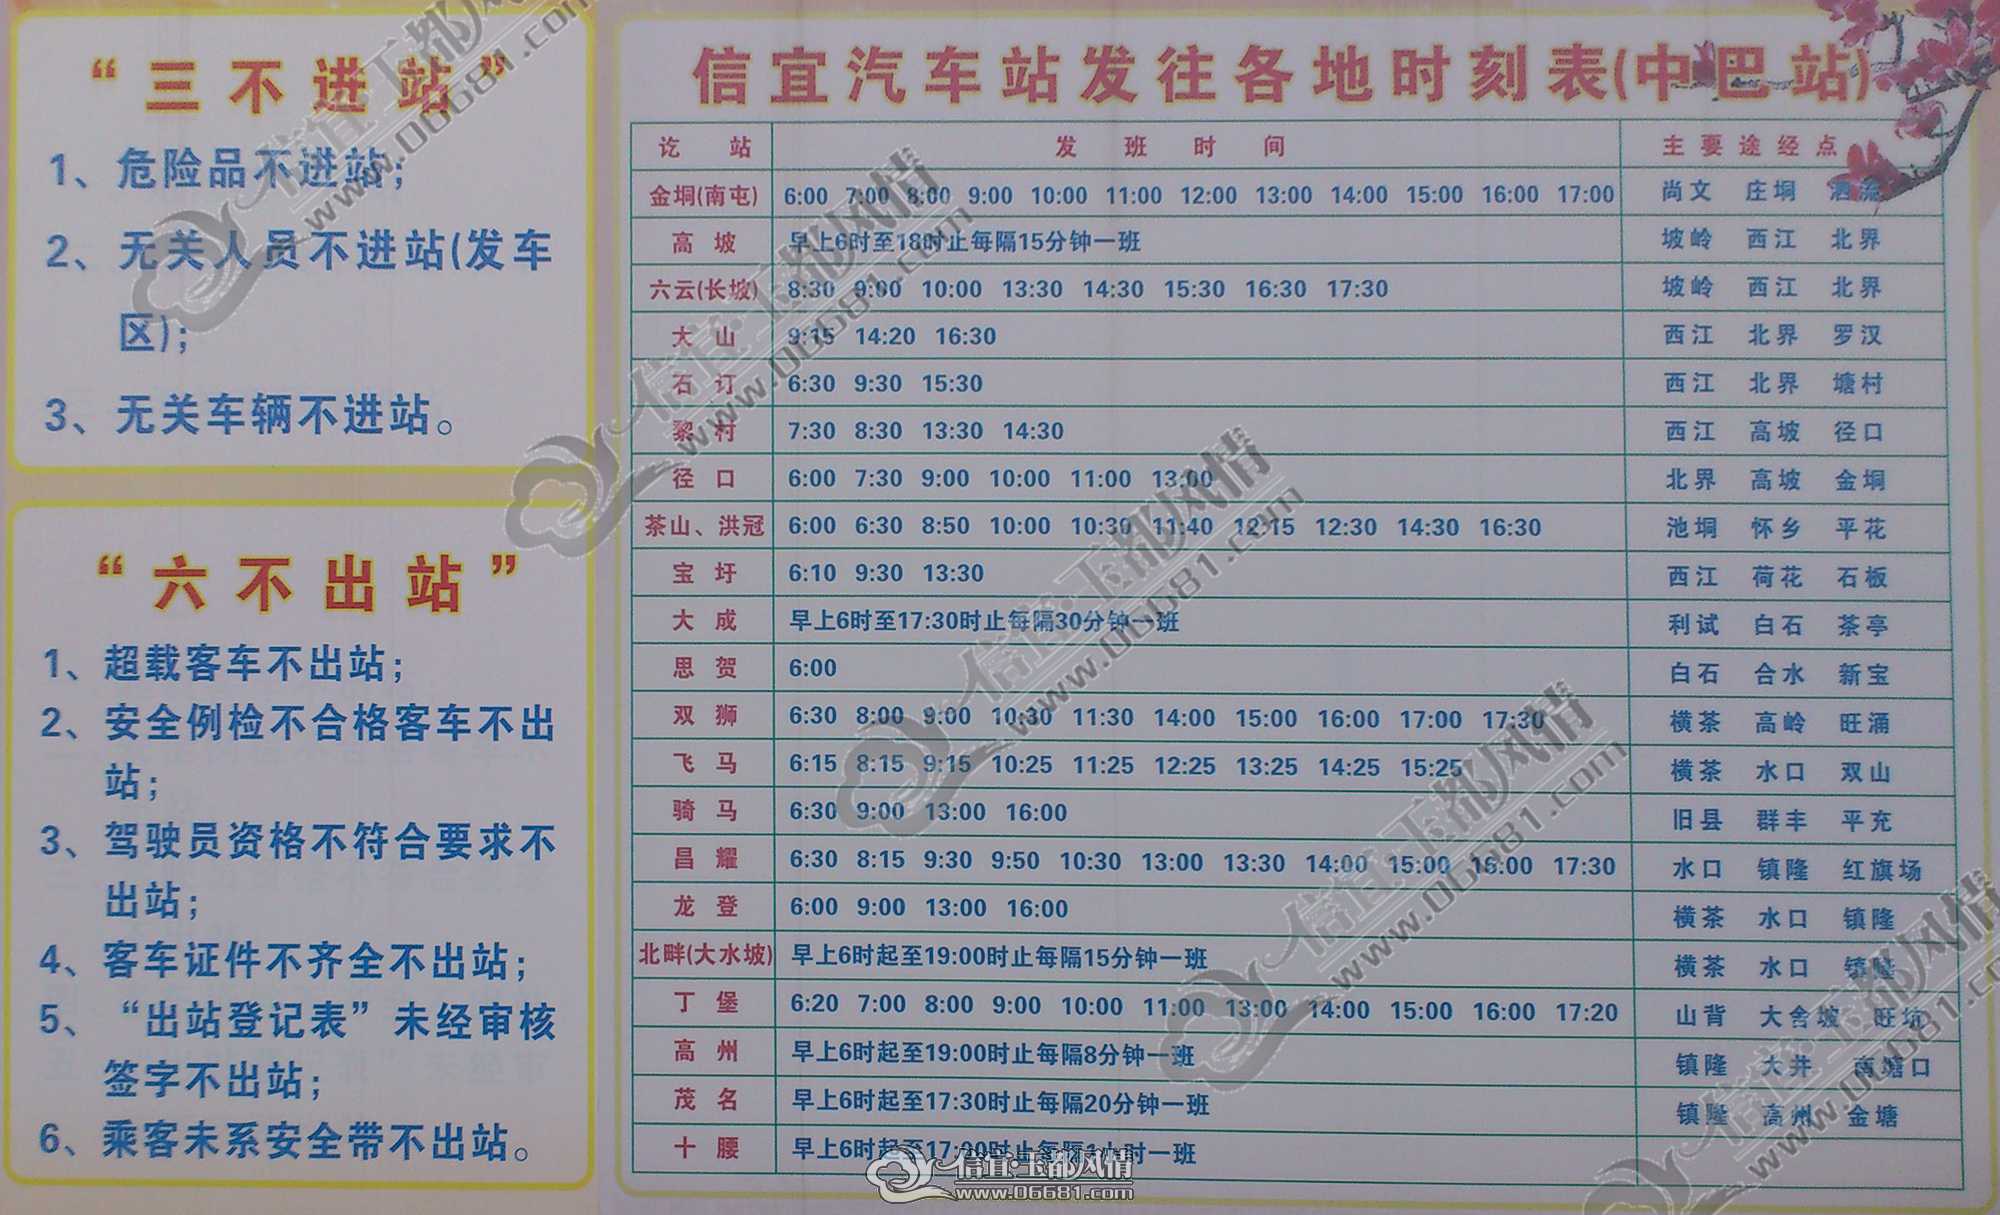 “三不进站”
1、危险品不进站；
2、无关人员不进站(发车
区)；
3、无关车辆不进站。
“六不出站”
1、超载客车不出站；
2、安全例检不合格客车不出
站；
3、驾驶员资格不符合要求不
出站；
4、客车证件不齐全不出站；
5、“出站登记表”未经审核
签字不出站；
6、乘客未系安全带不出站。
信宜汽车站发往各地时刻表(中巴站)
讫站 发班时间 主要途经点
金垌(南屯) 6:00 7:00 8:00 9:00 10:00 11:00 12:00 13:00 14:00 15:00 16:00 17:00 尚文 庄垌 泗流
高坡 早上6时至18时止每隔15分钟一班 坡岭 西江 北界
六云(长坡) 8:30 9:00 10:00 13:30 14:30 15:30 16:30 17:30 坡岭 西江 北界
大山 9:15 14:20 16:30 西江 北界 罗汉
石订 6:30 9:30 15:30 西江 北界 塘村
黎村 7:30 8:30 13:30 14:30 西江 高坡 径口
径口 6:00 7:30 9:00 10:00 11:00 13:00 北界 高坡 金垌
茶山、洪冠 6:00 6:30 8:50 10:00 10:30 11:40 12:15 12:30 14:30 16:30 池垌 怀乡 平花
宝圩 6:10 9:30 13:30 西江 荷花 石板
大成 早上6时至17:30时止每隔30分钟一班 利试 白石 茶亭
思贺 6:00 白石 合水 新宝
双狮 6:30 8:00 9:00 10:30 11:30 14:00 15:00 16:00 17:00 17:30 横茶 高岭 旺涌
飞马 6:15 8:15 9:15 10:25 11:25 12:25 13:25 14:25 15:25 横茶 水口 双山
骑马 6:30 9:00 13:00 16:00 旧县 群丰 平充
昌耀 6:30 8:15 9:30 9:50 10:30 13:00 13:30 14:00 15:00 16:00 17:30 水口 镇隆 红旗场
龙登 6:00 9:00 13:00 16:00 横茶 水口 镇隆
北畔(大水坡) 早上6时起至19:00时止每隔15分钟一班 横茶 水口 镇隆
丁堡 6:20 7:00 8:00 9:00 10:00 11:00 13:00 14:00 15:00 16:00 17:20 山背 大舍坡 旺坑
高州 早上6时起至19:00时止每隔8分钟一班 镇隆 大井 南塘口
茂名 早上6时起至17:30时止每隔20分钟一班 镇隆 高州 金塘
十腰 早上6时起至17:00时止每隔1小时一班
信宜·玉都风情
www.06681.com